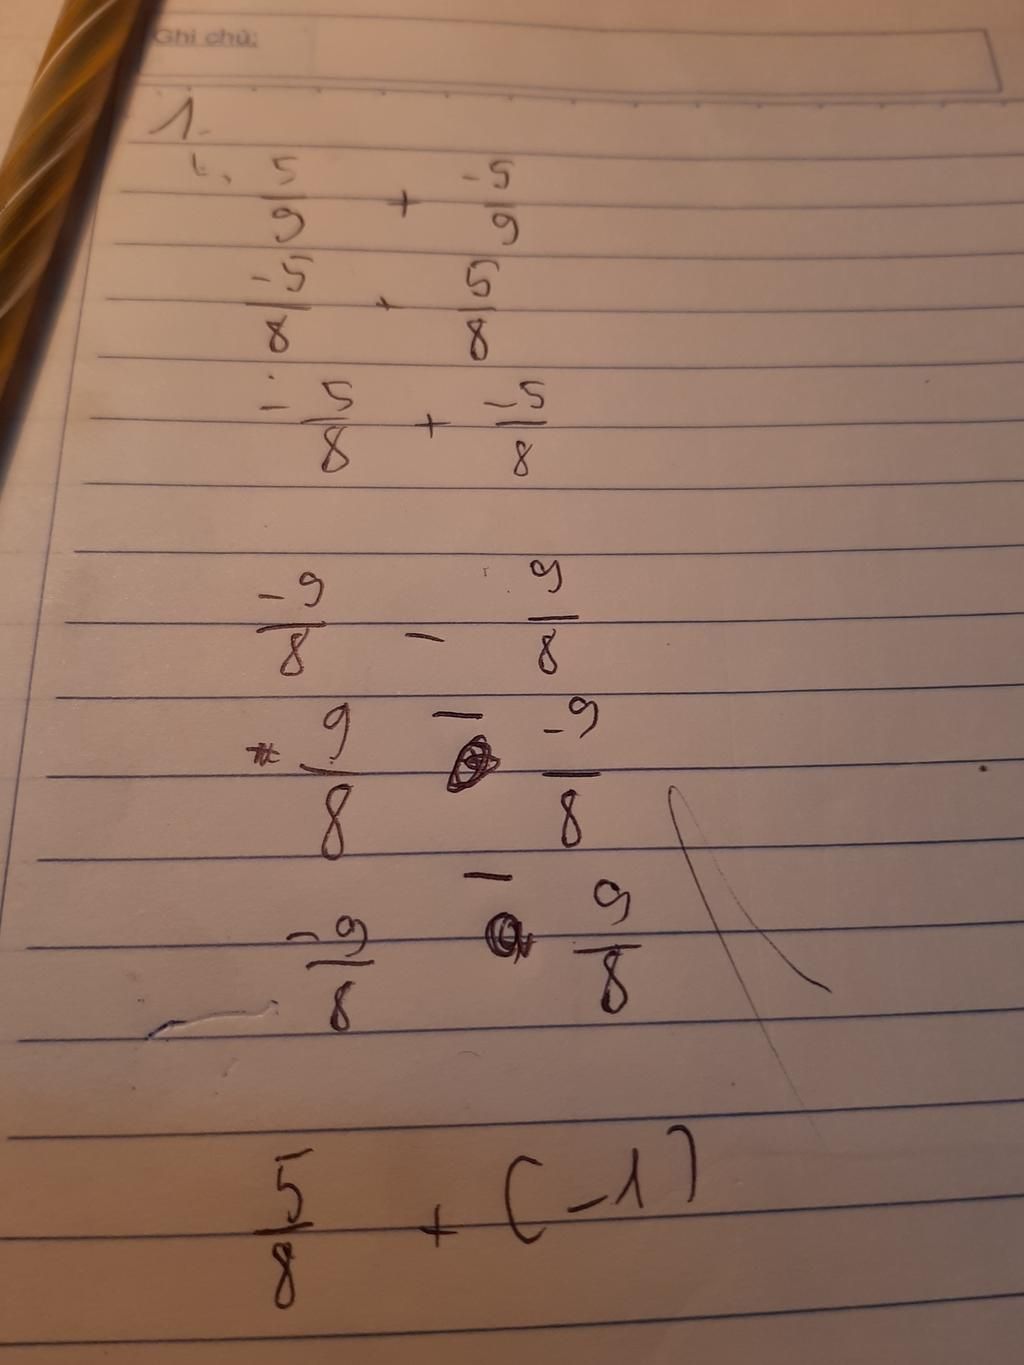 Ghi chú:
1.
5/9 + -5/9
-5/8 + 5/8
- 5/8 + -5/8
-9/8 - 9/8
9/8 - -9/8
-9/8 - 9/8
5/8 + (-1)